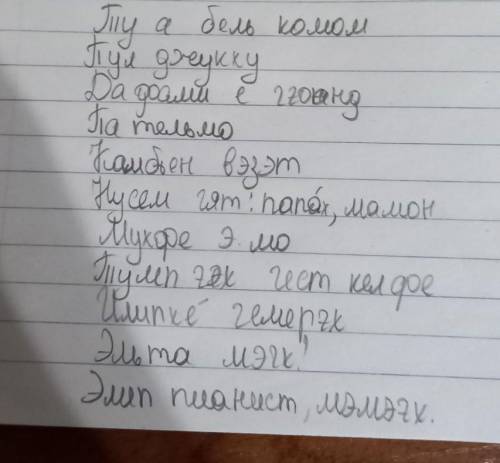 Ту а бель комом
Пул джукку
Да фами е ггонд
Па тельмо
Камбьен вэзэт
Нусем гят: папа́х, мамон
Мухфре э.мо
Тулип гэк гест келфое
Илипке гемергк
Эльта мэгк!
Элип пианист, мэмэгк.